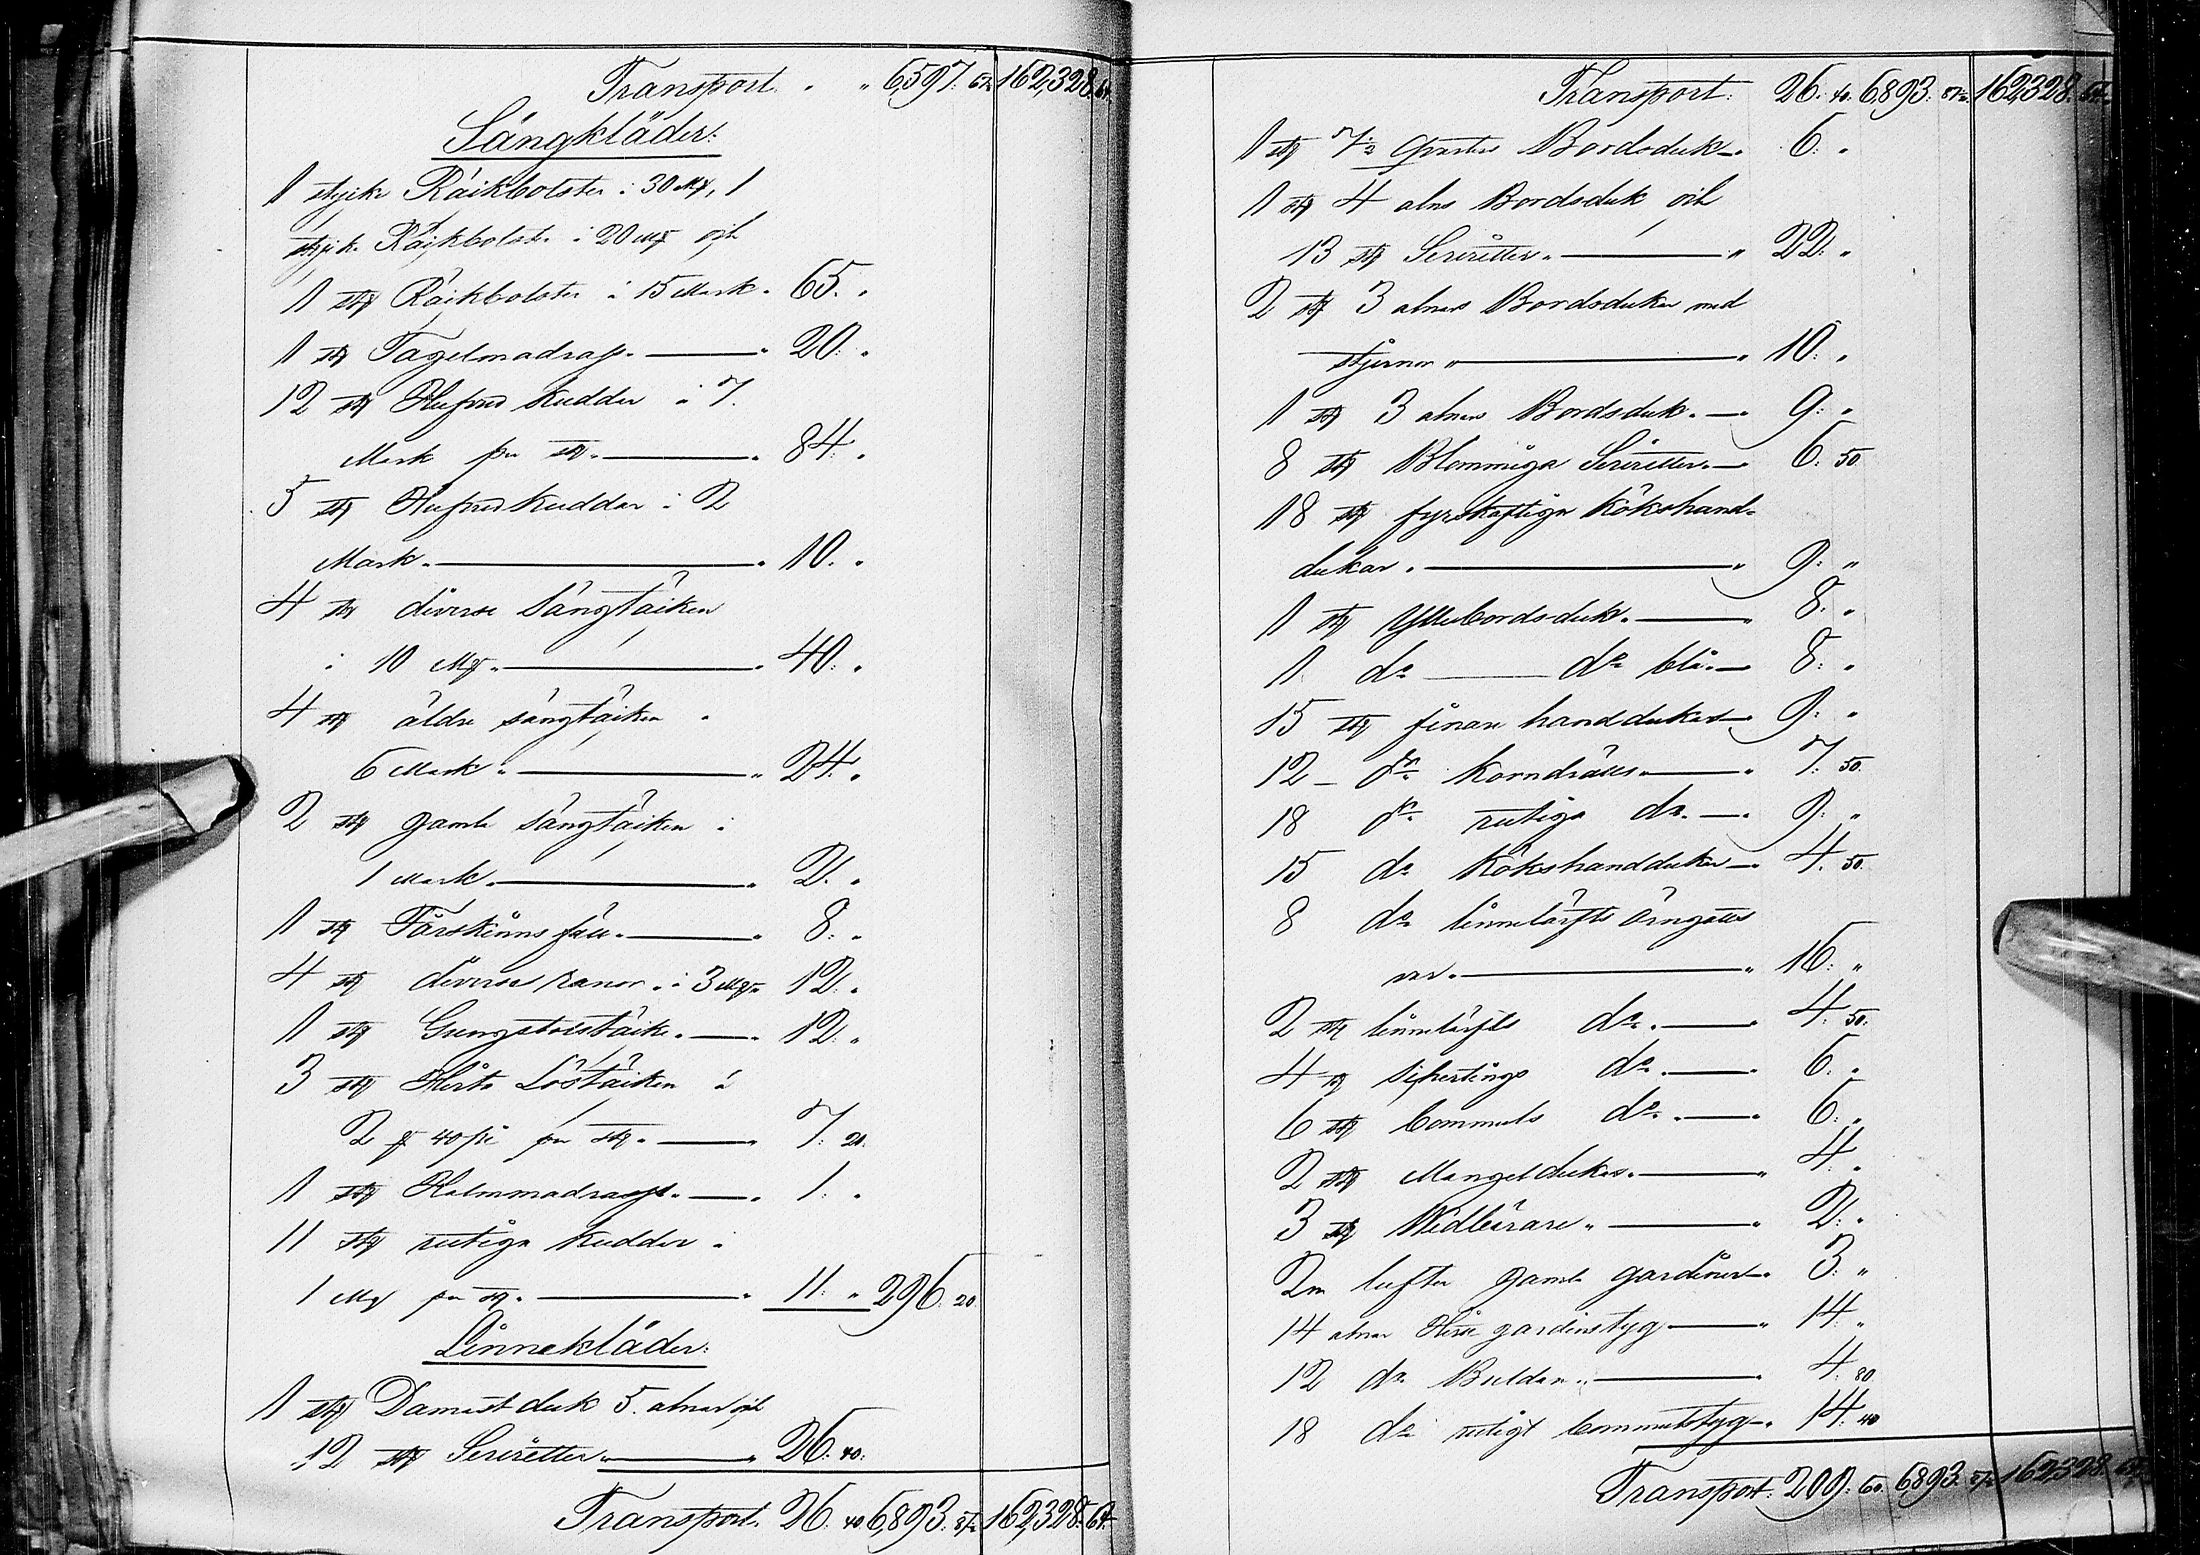 Transport. . „ 6,597: 67. 162,328. 64.
Sängkläder:
1 styck Räikbolster á 30 Mk, 1
styck Räikbolst. á 20 Mk och
1 stk Räikbolster á 15 Mark. 65. „
1 stk Tagelmadrass. — „ 20: „
12 stk Hufvud kuddar á 7.
Mark per stk. — „ 84: „
5 stk Hufvudkuddar á 2
Mark. — „ 10. „
4 stk diverse Sängtäiken
á 10 Mk. — „ 40: „
4 stk äldre sängtäiken á
6 Mark „ — „ 24: „
2 stk gamla sängtäiken á
1 Mark. — „ 2. „
1 stk Fårskinns fäll. — „ 8: „
4 stk diverse ranor. á 3 Mk. 12: „
1 stk Gungstolstäike. — „ 12: „
3 stk Hvita Löstäiken á
2 40 pi per stk. — „ 7: 20.
1 stk Halmmadrass. — „ 1: „
11 stk rutiga kuddar á
1 Mk per stk. — „ 11: „ 296. 20.
Linnekläder:
1 stk Damast duk 5. alnar och
12 stk Servietter — „ 26: 40:
Transport. 26: 40 6,893: 87. 162,328: 64.
Transport: 26. 40. 6,893: 87. 162,328. 64.
1 stk 7/2 Bordsduk —. 6: „
1 stk 4 alns Bordsduk och
13 stk Servietter. — „ 22: „
2 stk 3 alnars Bordsdukar med
stjernor „ — „ 10: „
1 stk 3 alnars Bordsduk. —. 9: „
8 stk Blommiga Servietter. — 6: 50.
18 stk fyrskaftiga Kökshand-
dukar. — „ 9: „
1 stk Yllebordsduk. — „ 8: „
1 do — do blå. — 8: „
15 stk finare handdukar — 9: „
12 — do korndrälls — „ 7: 50.
18 do rutiga do. —. 9: „
15 do Kökshanddukar —. 4. 50.
8 do linnelärfts örngotts
var. — „ 16: „
2 stk linnelärfts do. — „ 4: 50:
4 stk do. — „ 6: „
6 stk bommuls do. — „ 6: „
2 stk Mangeldukar. — „ 4: „
3 stk Wedbärare „ — „ 2: „
2 lufter gamla gardiner —. 3: „
14 alnar gardinstyg — „ 14: „
12 do Buldan „ — „ 4: 80.
18 do rutigt bommulstyg —. 14: 40
Transport: 209: 60. 6,893: 87. 162,328. 64.